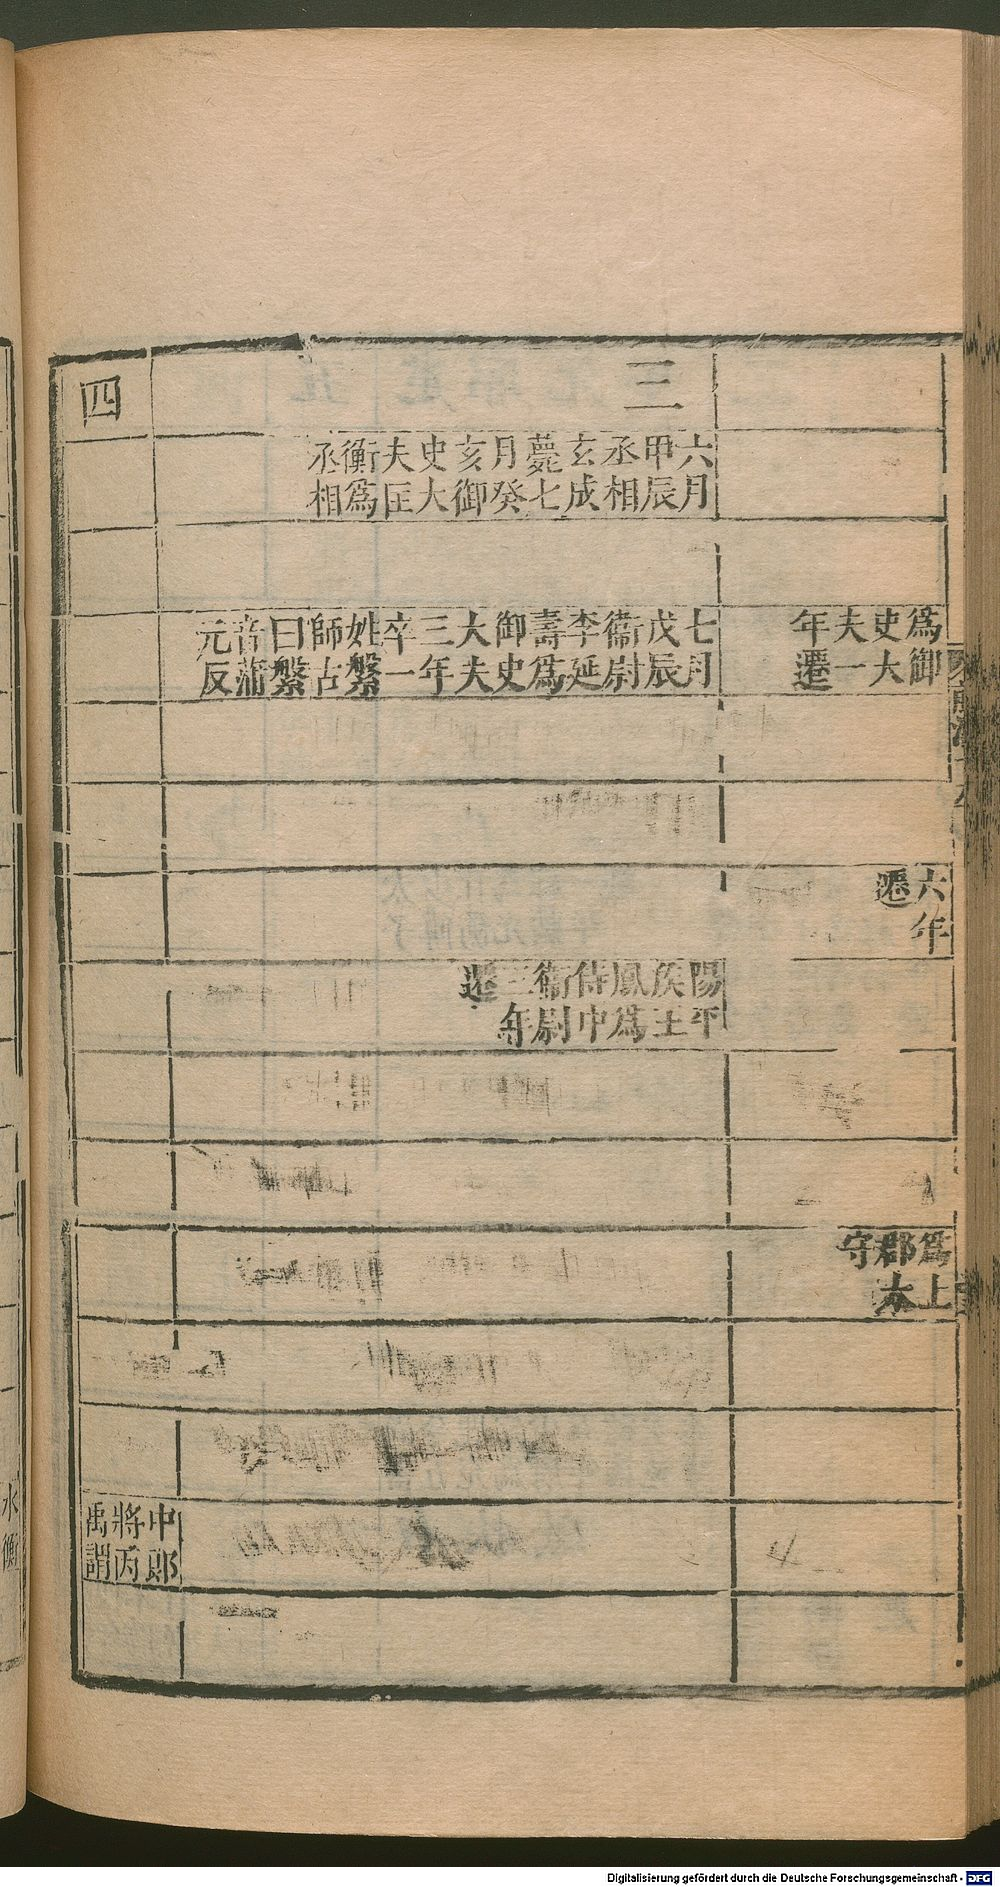 爲御史大夫一年遷
六年遷
爲上郡太守
三
六月甲辰丞相玄成薨七月癸亥御史大夫匡衡爲丞相
七月戊辰衞尉李延壽爲御史大夫三年卒一姓繁師古曰繁音蒲元反
陽平侯王鳳爲侍中衞尉三年遷
四
中郎將丙禹謂
水衡
Digitalisierung gefördert durch die Deutsche Forschungsgemeinschaft - DFG